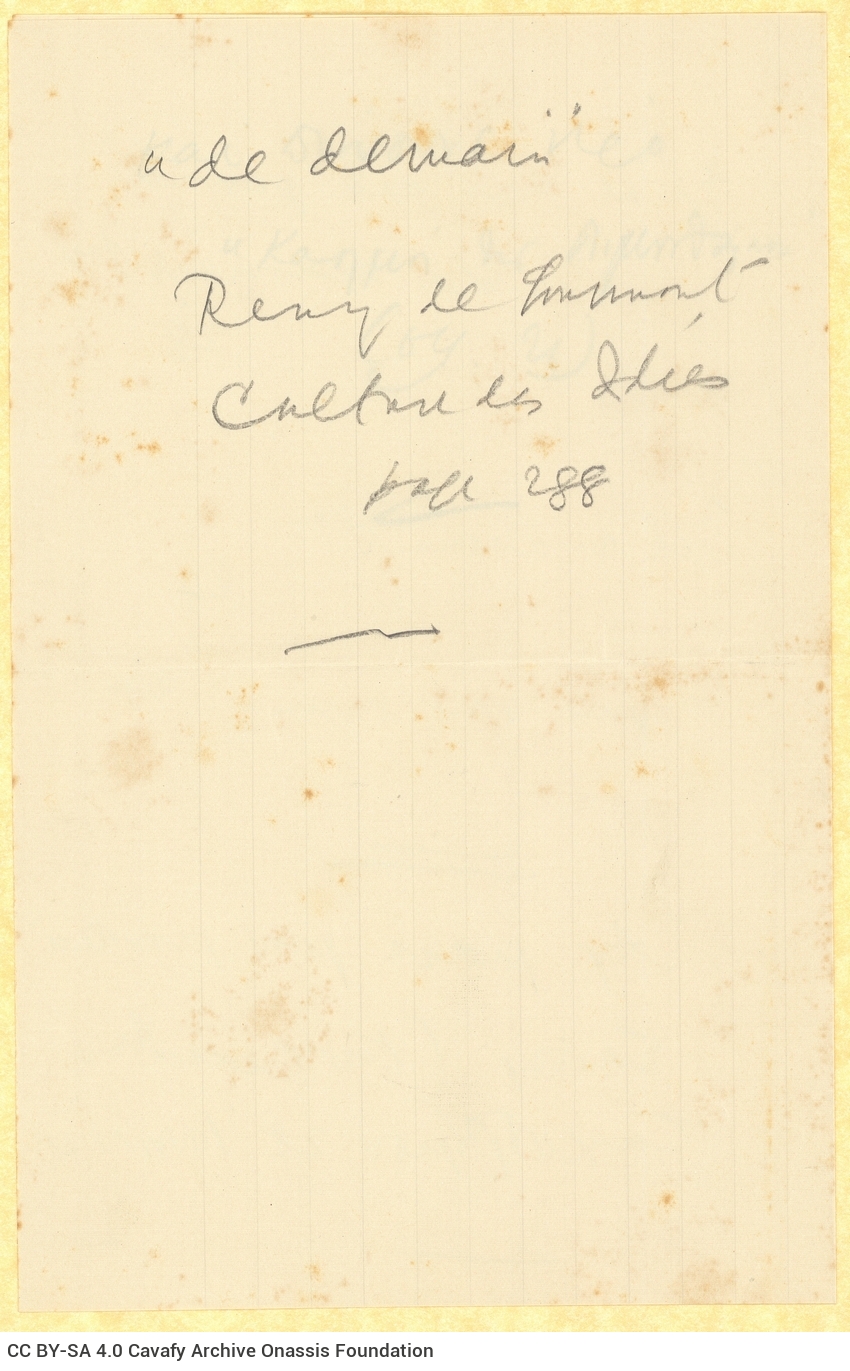 "de demain"
Remy de Gourmont
Culture des Idées
page 288
CC BY-SA 4.0 Cavafy Archive Onassis Foundation